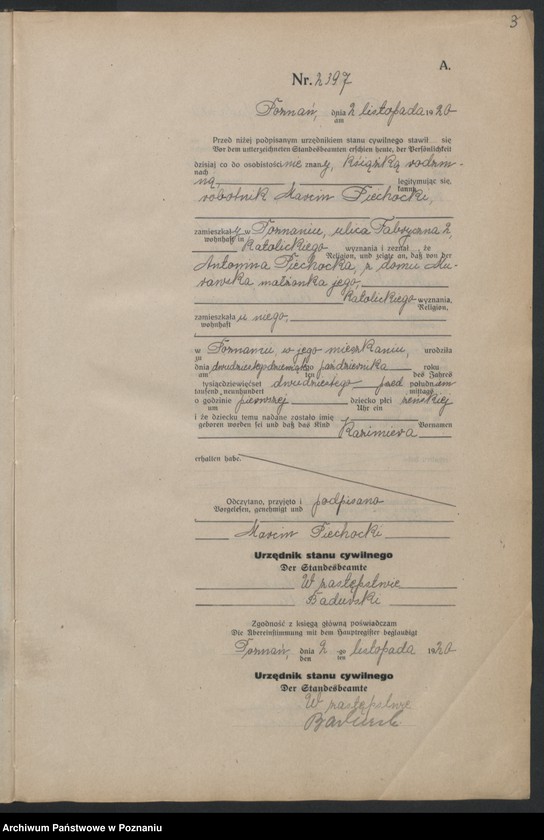 3
A.
Nr. 2397
Poznań, dnia 2 listopada 1920
am
Przed niżej podpisanym urzędnikiem stanu cywilnego stawił się
Vor dem unterzeichneten Standesbeamten erschien heute, der Persönlichkeit
dzisiaj co do osobistości nie znany, książką rodzin-
nach
ną, legitymując się,
kannt,
robotnik Marcin Piechocki,
zamieszkały w Poznaniu, ulica Fabryczna 2,
wohnhaft in
katolickiego wyznania i zeznał, że
Religion, und zeigte an, daß von der
Antonina Piechocka, z domu Mu-
rawska małżonka jego,
katolickiego wyznania,
Religion,
zamieszkała u niego,
wohnhaft
w Poznaniu, w jego mieszkaniu, urodziła
zu
dnia dwudziestego dziewiątego października roku
am ten des Jahres
tysiącdziewięćset dwudziestego przed południem
tausend neunhundert mittags
o godzinie pierwszej dziecko płci żeńskiej
um Uhr ein
i że dziecku temu nadane zostało imię
geboren worden sei und daß das Kind Vornamen
Kazimiera
erhalten habe.
Odczytano, przyjęto i podpisano
Vorgelesen, genehmigt und
Marcin Piechocki
Urzędnik stanu cywilnego
Der Standesbeamte
W zastępstwie
Badurski
Zgodność z księgą główną poświadczam
Die Übereinstimmung mit dem Hauptregister beglaubigt
Poznań, dnia 2 -go listopada 1920
den ten
Urzędnik stanu cywilnego
Der Standesbeamte
W zastępstwie
Archiwum Państwowe w Poznaniu